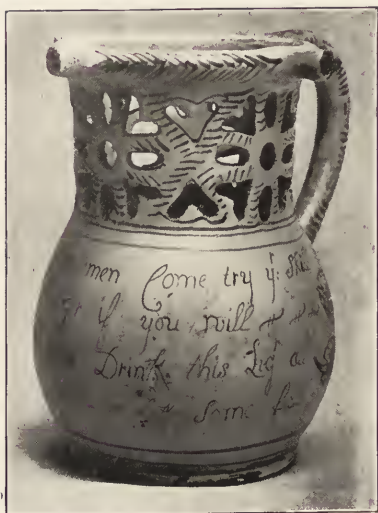 men Come try yͬ: Ski
if you will
Drink this Liqʳ a
Some